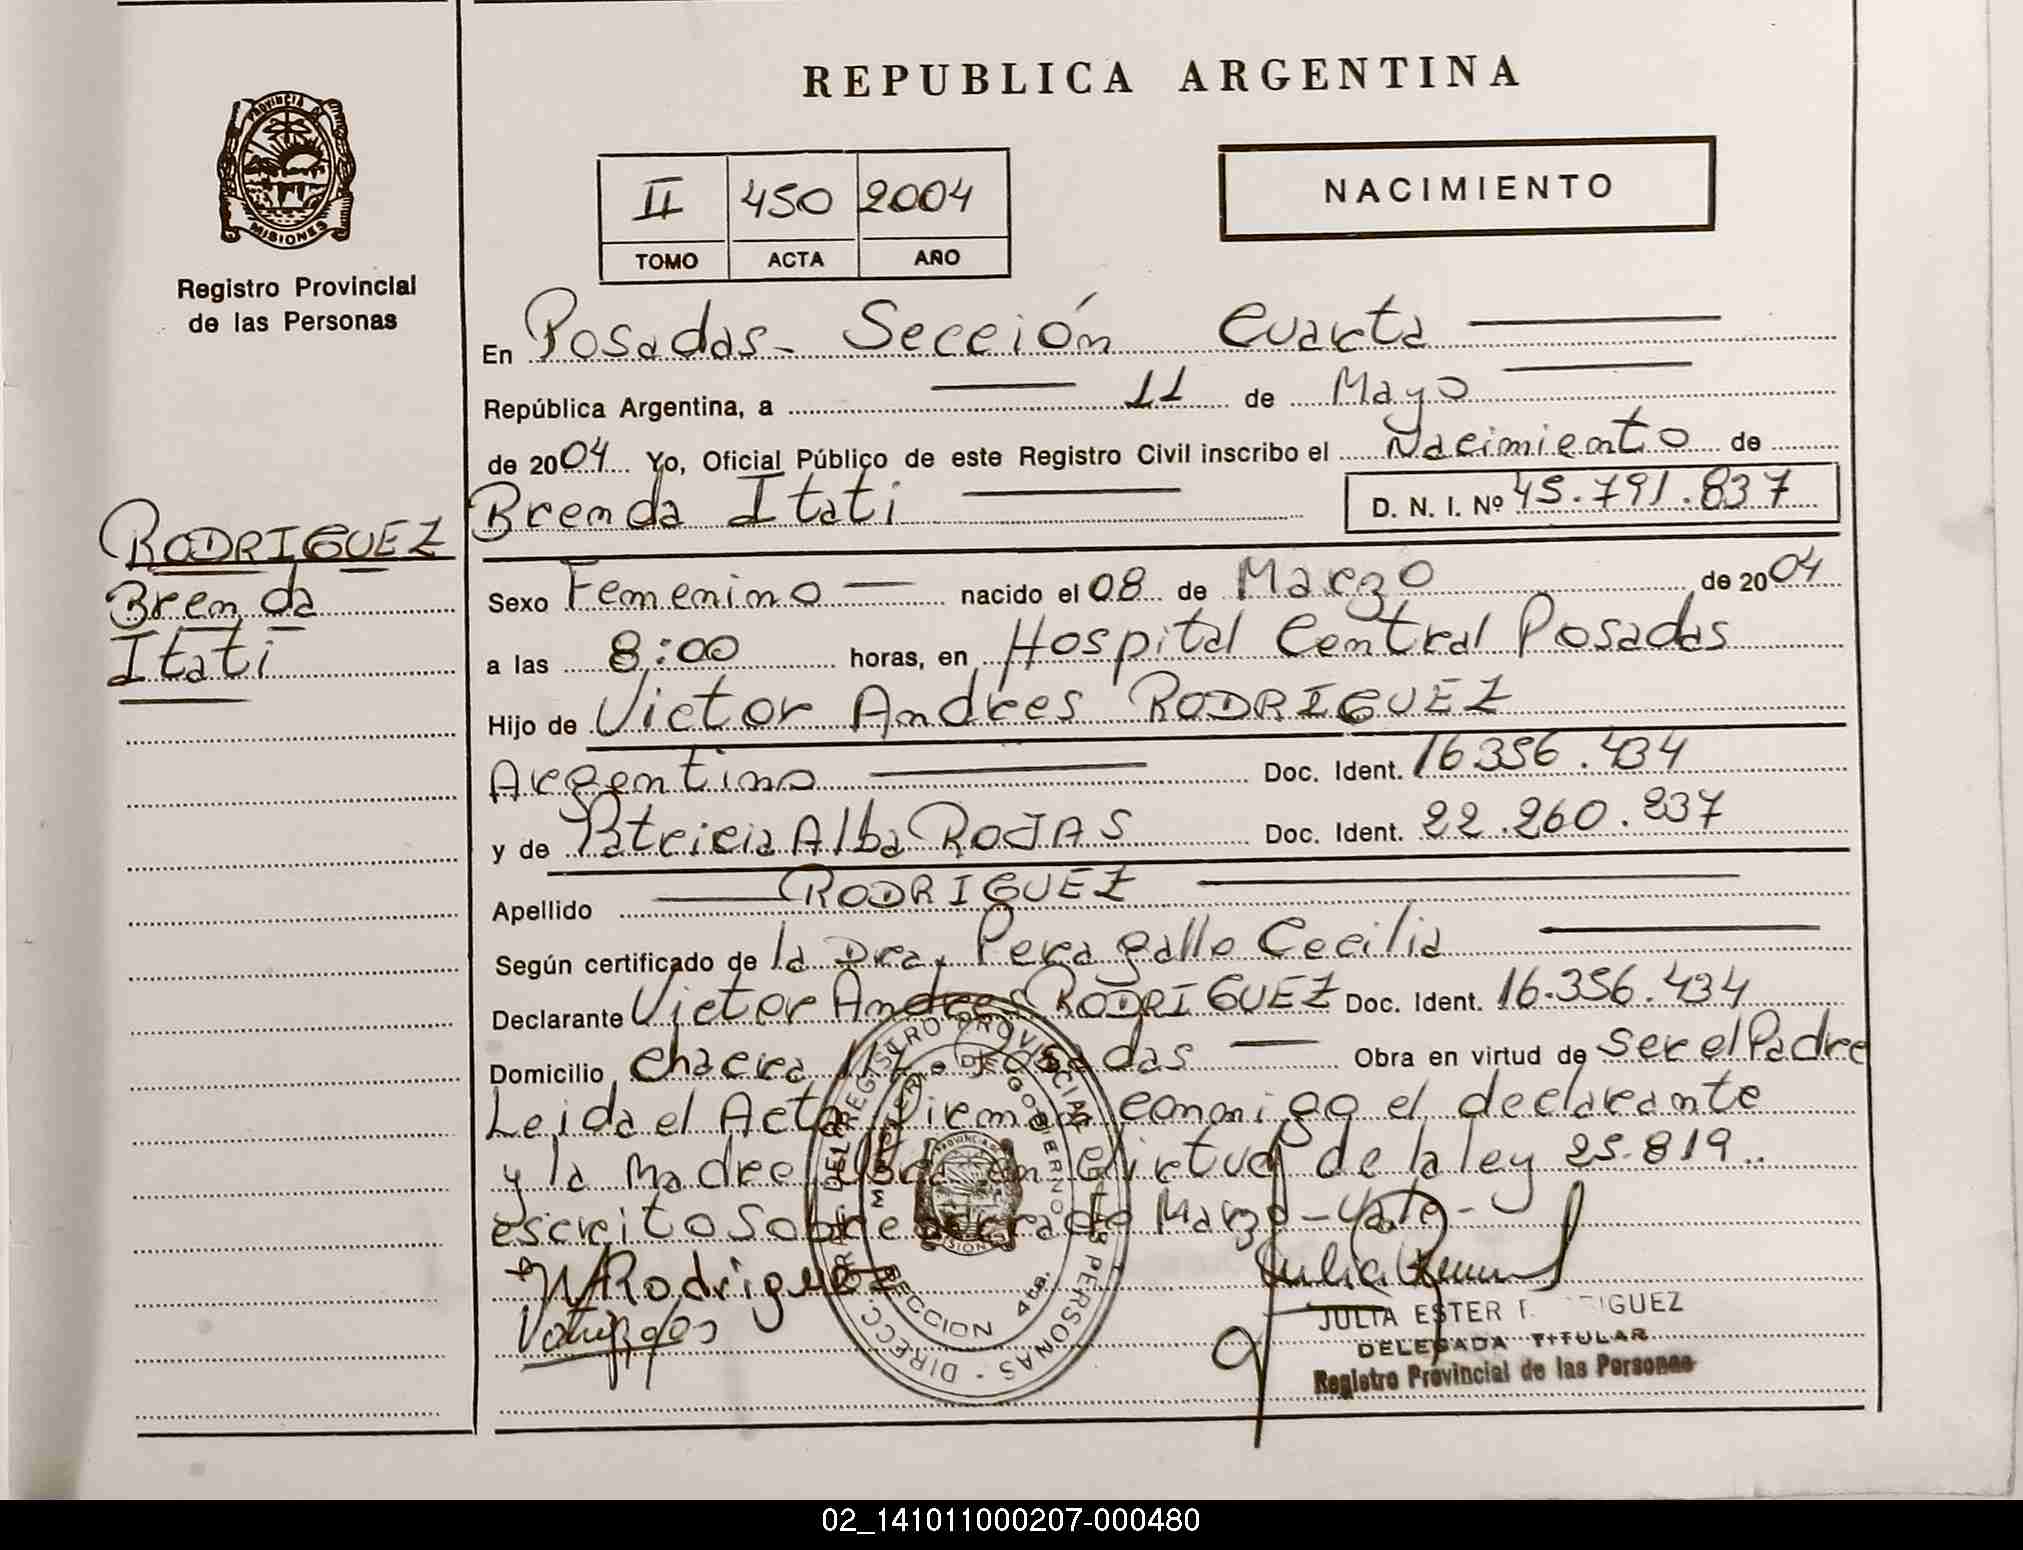 REPUBLICA ARGENTINA
PROVINCIA DE
MISIONES
Registro Provincial
de las Personas
II 450 2004
TOMO ACTA AÑO
NACIMIENTO
En Posadas - Sección Cuarta
República Argentina, a 11 de Mayo
de 2004 Yo, Oficial Público de este Registro Civil inscribo el Nacimiento de
Brenda Itati D. N. I. Nº 45.791.837
RODRIGUEZ
Brenda
Itati
Sexo Femenino nacido el 08 de Marzo de 2004
a las 8:00 horas, en Hospital Central Posadas
Hijo de Victor Andres RODRIGUEZ
Argentino Doc. Ident. 16.356.434
y de Patricia Alba ROJAS Doc. Ident. 22.260.237
Apellido RODRIGUEZ
Según certificado de la Dra. Peragallo Cecilia
Declarante Victor Andres RODRIGUEZ Doc. Ident. 16.356.434
Domicilio Chacra Posadas Obra en virtud de ser el Padre
Leida el Acta Firman conmigo el declarante
y la madre Obra en Virtud de la ley 25.819..
escrito sobre Marzo - Vale -
Rodriguez
JULIA ESTER
DELEGADA TITULAR
Registro Provincial de las Personas
DIRECC DEL REGISTRO PROVINCIAL DE LAS PERSONAS
DE GOBIERNO
SECCION 4ta.
02_141011000207-000480